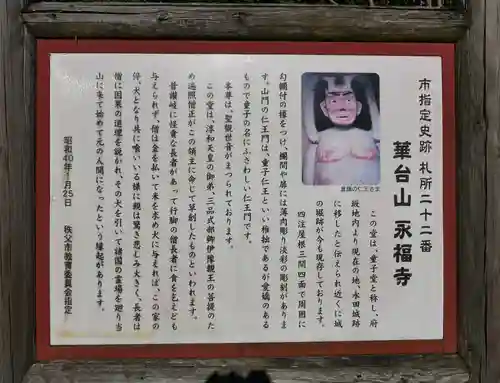 市指定史跡 札所二十二番
華台山 永福寺
この堂は、童子堂と称し、府
坂地内より現在の地、永田城跡
に移したと伝えられ近くに城
の堀跡が今も現存しております。
四注屋根三間四面で周囲に
勾欄付の椽をつけ、欄間や扉には薄肉彫り淡彩の彫刻がありま
す。山門の仁王門は、童子仁王といい稚拙であるが愛嬌のある
もので童子の名にふさわしい仁王門です。
本尊は、聖観世音がまつられております。
この堂は、淳和天皇の御弟、三品式部卿伊豫親王の菩提のた
め遍照僧正がこの領主に命じて草創したものといわれます。
昔讃岐に怪貪な長者があって行脚の僧長者に斎を乞えども
与えられず、僧は金を払いて米を求め犬に与えれば、この家の
倅、犬となり共に喰いいる様に親は驚き悲しみ大きく、長者は
僧に因果の道理を説かれ、その犬を引いて諸国の霊場を廻り当
山に来て始めて元の人間になったという縁起があります。
昭和40年1月25日
秩父市教育委員会指定